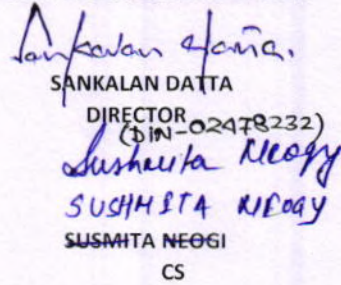 Sankalan Datta.
SANKALAN DATTA
DIRECTOR
(DIN-02478232)
Sushmita Neogy
SUSHMITA NEOGY
SUSMITA NEOGI
CS